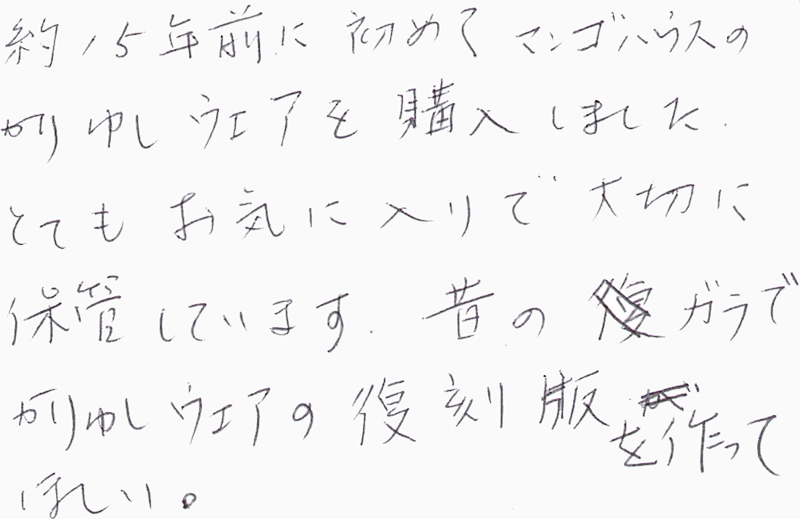 約15年前に初めてマンゴハウスの
かりゆしウェアを購入しました.
とてもお気に入りで大切に
保管しています. 昔のガラで
かりゆしウェアの復刻版を作って
ほしい。